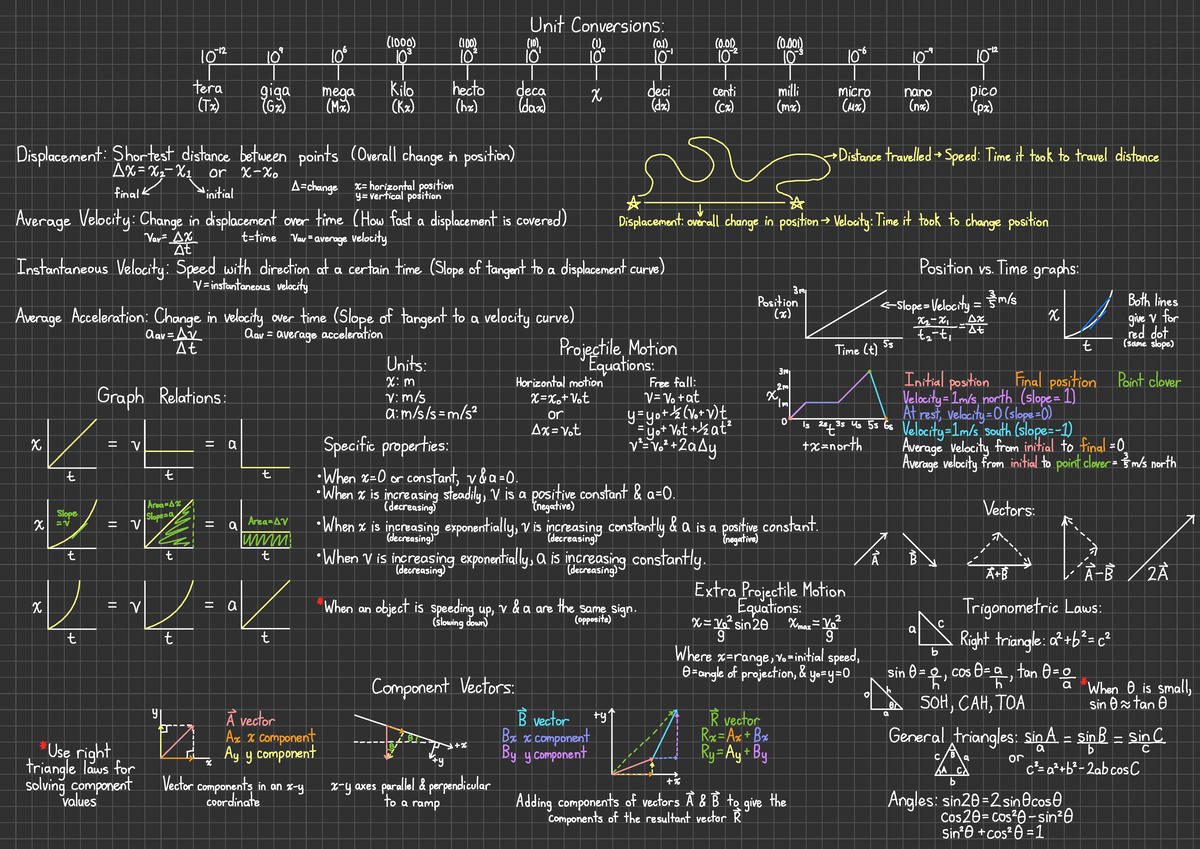 Unit Conversions:
(1000) (100) (10) (1) (0.1) (0.01) (0.001)
10⁻¹² 10⁹ 10⁶ 10³ 10² 10¹ 10⁰ 10⁻¹ 10⁻² 10⁻³ 10⁻⁶ 10⁻⁹ 10⁻¹²
tera giga mega Kilo hecto deca x deci centi milli micro nano pico
(Tx) (Gx) (Mx) (Kx) (hx) (dax) (dx) (cx) (mx) (μx) (nx) (px)
Displacement: Shortest distance between points (Overall change in position)
Δx = x₂ - x₁ or x-x₀
final initial
Δ=change x= horizontal position
y= vertical position
→Distance travelled → Speed: Time it took to travel distance
Displacement: overall change in position → Velocity: Time it took to change position
Average Velocity: Change in displacement over time (How fast a displacement is covered)
Vav = Δx/Δt t=time Vav = average velocity
Instantaneous Velocity: Speed with direction at a certain time (Slope of tangent to a displacement curve)
V = instantaneous velocity
Average Acceleration: Change in velocity over time (Slope of tangent to a velocity curve)
aav = Δv/Δt aav = average acceleration
Position vs. Time graphs:
3m
Position
(x)
Time (t) 5s
Slope = Velocity = 3/5 m/s
x₂-x₁/t₂-t₁ = Δx/Δt
x
t
Both lines
give v for
red dot
(same slope)
3m
2m
1m
0
x
1s 2s 3s 4s 5s 6s
t
+x=north
Initial position Final position Point clover
Velocity = 1m/s north (slope = 1)
At rest, velocity=0 (slope=0)
Velocity = 1m/s south (slope=-1)
Average velocity from initial to final = 0
Average velocity from initial to point clover = 3/5 m/s north
Units:
x: m
v: m/s
a: m/s/s = m/s²
Projectile Motion
Equations:
Horizontal motion
x=x₀+v₀t
or
Δx=v₀t
Free fall:
v=v₀+at
y=y₀+½(v₀+v)t
=y₀+v₀t+½at²
v²=v₀²+2aΔy
Graph Relations:
x = v = a
t t t
x = v = a
Slope
=v
Area=Δx
Slope=a
Area=Δv
t t t
x = v = a
t t t
Specific properties:
•When x=0 or constant, v & a=0.
•When x is increasing steadily, v is a positive constant & a=0.
(decreasing) (negative)
•When x is increasing exponentially, v is increasing constantly & a is a positive constant.
(decreasing) (decreasing) (negative)
•When v is increasing exponentially, a is increasing constantly.
(decreasing) (decreasing)
*When an object is speeding up, v & a are the same sign.
(slowing down) (opposite)
Extra Projectile Motion
Equations:
x = v₀²/g sin2θ xmax = v₀²/g
Where x=range, v₀=initial speed,
θ=angle of projection, & y₀=y=0
Vectors:
A B A+B A-B 2A
Trigonometric Laws:
a c b
Right triangle: a²+b²=c²
sin θ = o/h, cos θ = a/h, tan θ = o/a
o h a θ
SOH, CAH, TOA
*When θ is small,
sin θ ≈ tan θ
General triangles: sin A/a = sin B/b = sin C/c
or
c²=a²+b²-2ab cosC
c B a
A C
b
Angles: sin2θ=2sinθcosθ
cos2θ=cos²θ-sin²θ
sin²θ+cos²θ=1
Component Vectors:
*Use right
triangle laws for
solving component
values
y
x
A vector
Ax x component
Ay y component
Vector components in an x-y
coordinate
θ θ
+x
+y
x-y axes parallel & perpendicular
to a ramp
B vector
Bx x component
By y component
+y
+x
R vector
Rx = Ax + Bx
Ry = Ay + By
Adding components of vectors A & B to give the
components of the resultant vector R